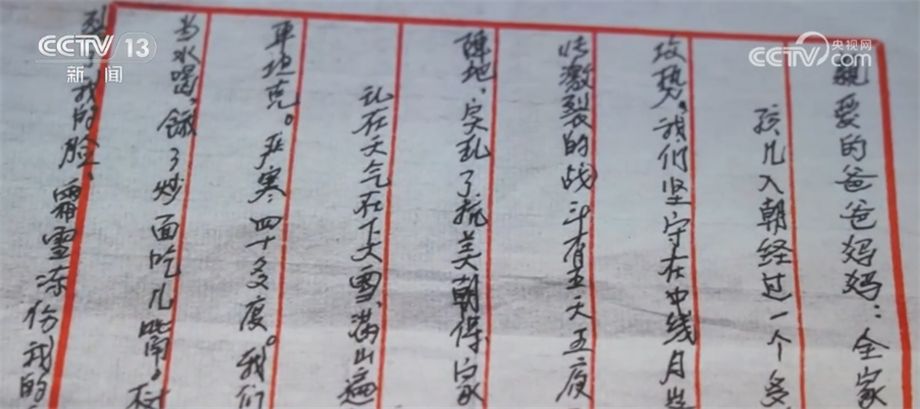 CCTV 13
新闻
央视网
CCTV.com
亲爱的爸爸妈妈：全家
孩儿入朝经过一个多
攻势。我们坚守在冲线月当
性激裂的战斗有五天五夜
阵地，实乱了抗美朝保家
现在天气在下大雪，满山遍
车坦克。严寒四十多度。我们
当水喝，饿了炒面吃几嘴。树
我的脸，霜雪冻伤我的